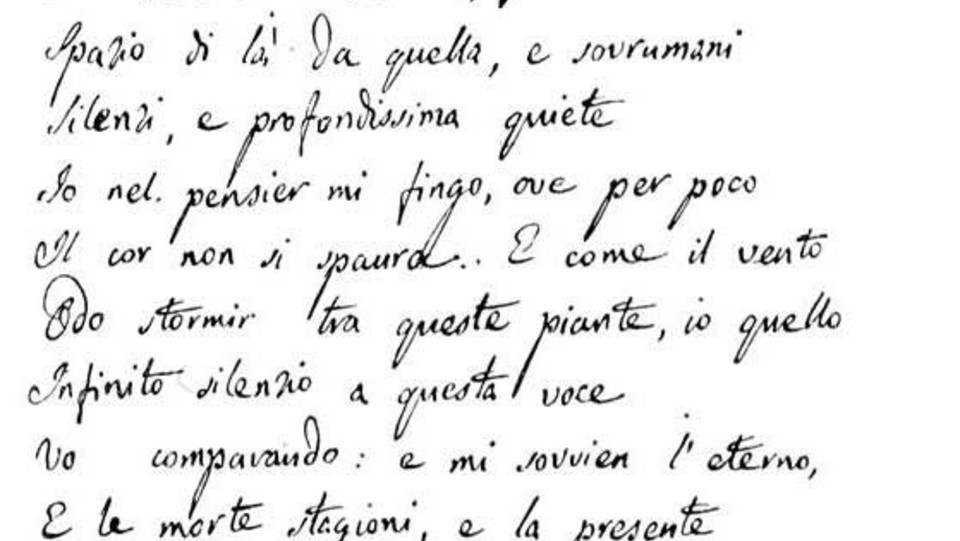 Spazio di là da quella, e sovrumani
Silenzi, e profondissima quiete
Io nel pensier mi fingo, ove per poco
Il cor non si spaura.. E come il vento
Odo stormir tra queste piante, io quello
Infinito silenzio a questa voce
Vo comparando: e mi sovvien l'eterno,
E le morte stagioni, e la presente